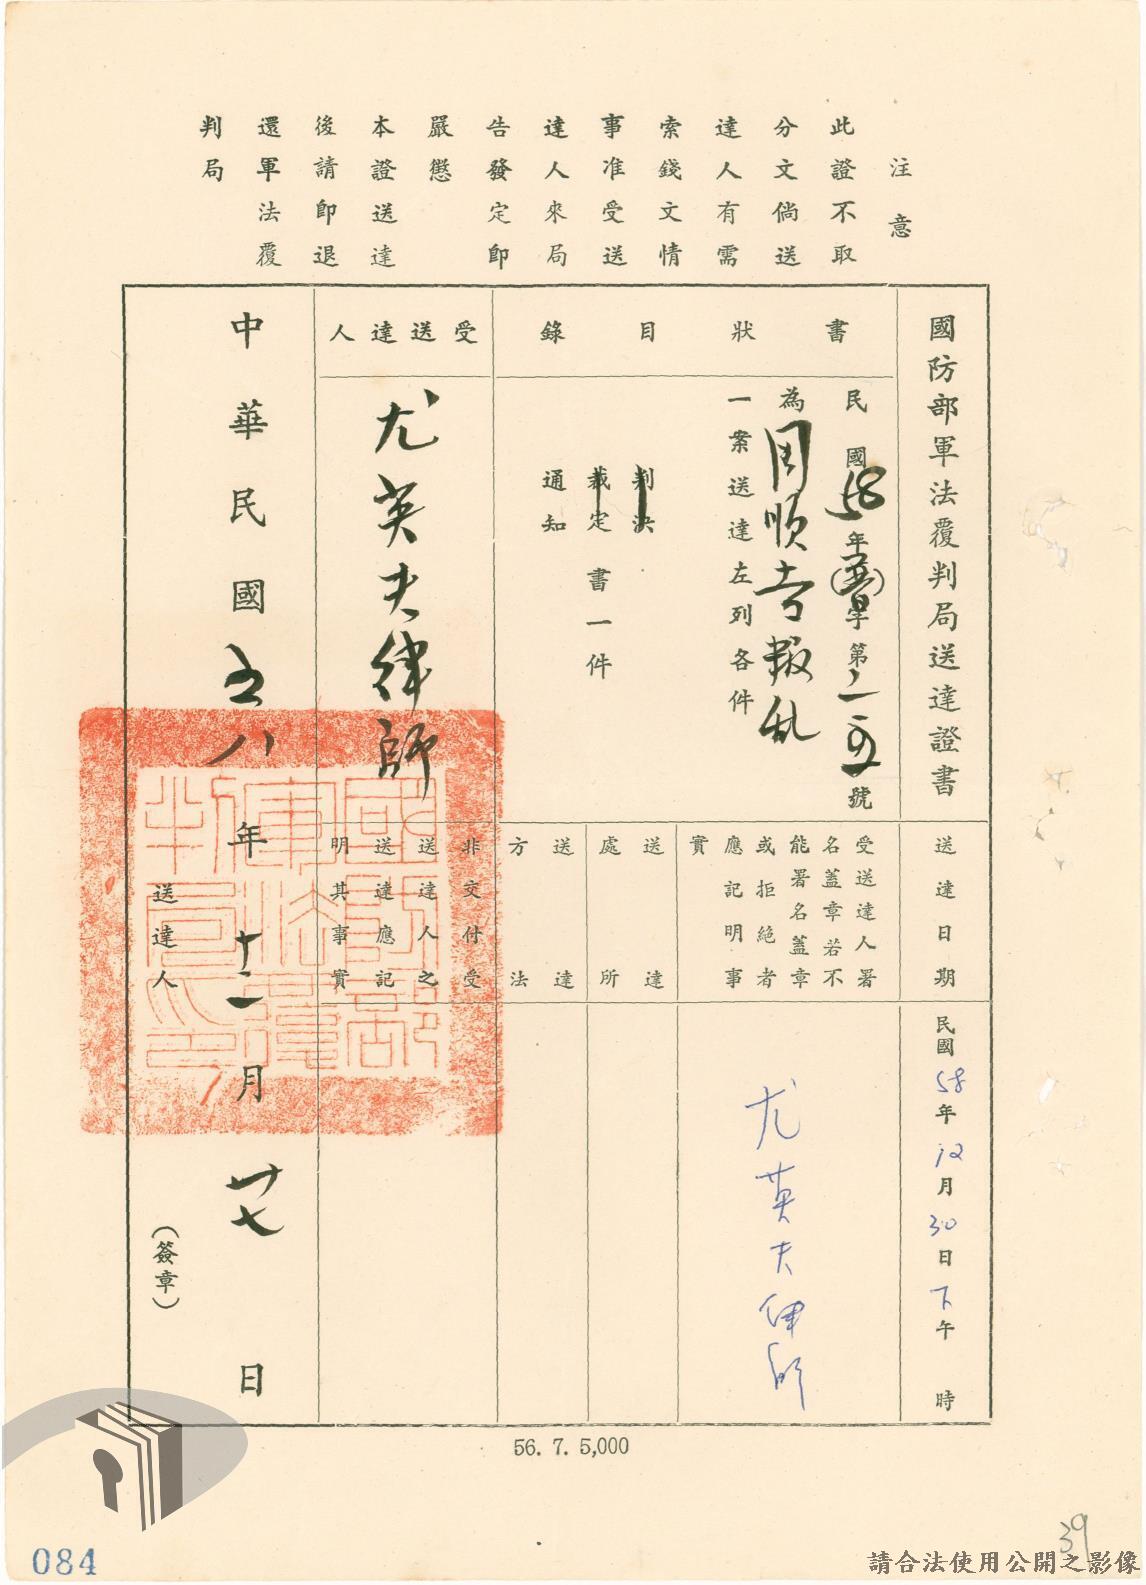 注意
此證不取
分文倘送
達人有需
索錢文情
事准受送
達人來局
告發定即
嚴懲
本證送達
後請即退
還軍法覆
判局
國防部軍法覆判局送達證書
書狀目錄
民國58年(普)字第二一四號
為周順吉叛乱
一案送達左列各件
判決
裁定書一件
通知
受送達人
尤英夫律師
中華民國五八年十二月廿七日
送達日期
民國58年12月30日下午 時
受送達人署
名蓋章若不
能署名蓋章
或拒絕者
應記明事
實
尤英夫律師
送達
處所
送達
方法
非交付受
送達人之
送達應記
明其事實
送達人
(簽章)
國防部軍法覆判局印
56. 7. 5,000
084
39
請合法使用公開之影像